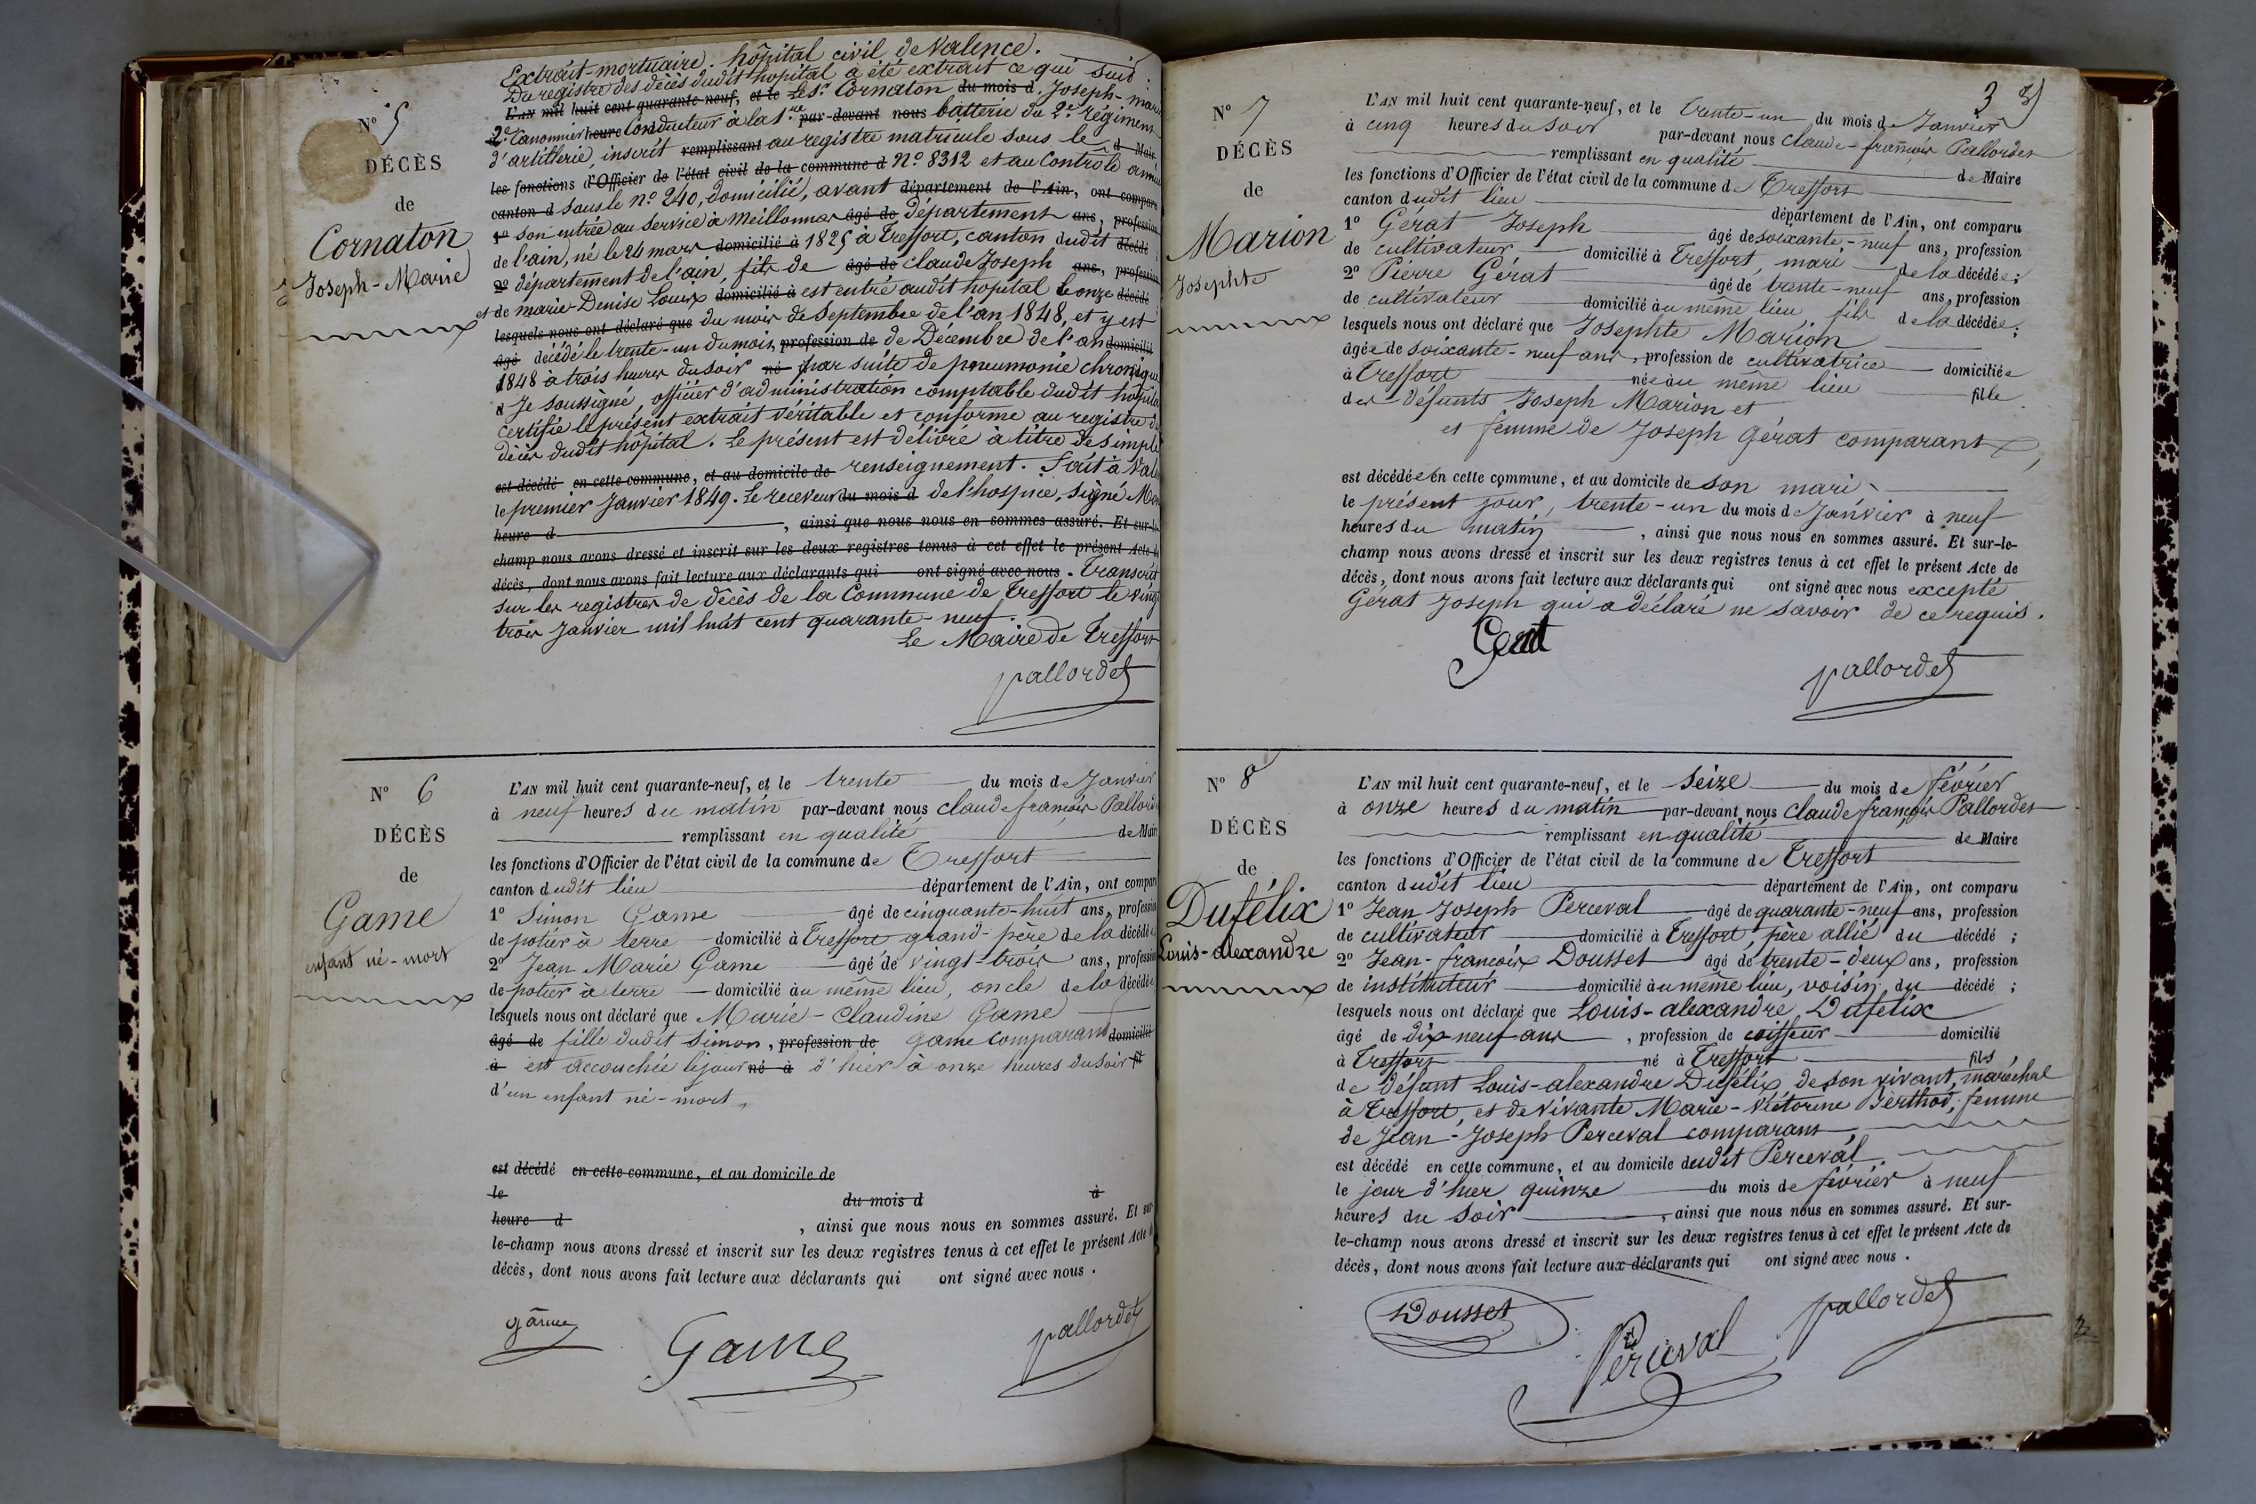 N° 5
DÉCÈS
de
Cornaton
Joseph-Marie
Extrait-mortuaire. hôpital civil de Valence.
Du registre des décès dudit hopital a été extrait ce qui suit :
L'AN mil huit cent quarante-neuf, et le Le Sr. Cornaton du mois d Joseph-marie
2e Canonnier heure Conducteur à la 1re par-devant nous batterie du 2e Régiment
d'artillerie, inscrit remplissant au registre matricule sous le d Maire
les fonctions d'Officier de l'état civil de la commune d N° 8312 et au Contrôle annuel
canton d sous le n° 240, domicilié, avant département de l'Ain, ont comparu
1° son entrée au service à Meillonnas âgé de département ans, profession
de l'ain, né le 24 mars domicilié à 1825 à Treffort, canton dudit décédé
2° département de l'ain, fils de âgé de claude Joseph ans, profession
et de marie-Denise Louix domicilié à est entré audit hopital le onze décédé
lesquels nous ont déclaré que du mois de Septembre de l'an 1848, et y est
âgé décédé le trente-un du mois, profession de de Décembre de l'an domicilié
1848 à trois heures du soir né par suite de pneumonie chronique
Je soussigné, officier d'administration comptable dudit hopital
certifie le présent extrait véritable et conforme au registre de
décès dudit hôpital. Le présent est délivré à titre de simple
est décédé en cette commune, et au domicile de renseignement. Fait à
le premier Janvier 1849. Le receveur du mois d de l'hospice, signé
heure d , ainsi que nous nous en sommes assuré. Et sur-le-
champ nous avons dressé et inscrit sur les deux registres tenus à cet effet le présent Acte de
décès, dont nous avons fait lecture aux déclarants qui ont signé avec nous. Transcrit
sur les registres de décès de la Commune de Treffort le vingt
trois Janvier mil huit cent quarante-neuf.
Le Maire de Treffort
pallordet
N° 6
DÉCÈS
de
Game
enfant né-mort
L'AN mil huit cent quarante-neuf, et le trente du mois de Janvier
à neuf heures du matin par-devant nous Claude françois Pallordet
remplissant en qualité de Maire
les fonctions d'Officier de l'état civil de la commune de Treffort
canton dudit lieu département de l'Ain, ont comparu
1° Simon Game âgé de cinquante-huit ans, profession
de potier à terre domicilié à Treffort grand-père de la décédée
2° Jean Marie Game âgé de vingt-trois ans, profession
de potier à terre domicilié au même lieu, oncle de la décédée
lesquels nous ont déclaré que Marie-Claudine Game
âgé de fille dudit Simon, profession de Game comparant domicilié
à est accouchée le jour né à d'hier à onze heures du soir fil
d'un enfant né-mort,
est décédé en cette commune, et au domicile de
le du mois d à
heure d , ainsi que nous nous en sommes assuré. Et sur-
le-champ nous avons dressé et inscrit sur les deux registres tenus à cet effet le présent Acte de
décès, dont nous avons fait lecture aux déclarants qui ont signé avec nous.
game
Game
pallordet
3
N° 7
DÉCÈS
de
Marion
Josephte
L'AN mil huit cent quarante-neuf, et le trente-un du mois de Janvier
à cinq heures du soir par-devant nous Claude-françois Pallordet
remplissant en qualité de Maire
les fonctions d'Officier de l'état civil de la commune de Treffort
canton dudit lieu département de l'Ain, ont comparu
1° Gérat Joseph âgé de soixante-neuf ans, profession
de cultivateur domicilié à Treffort, mari de la décédée ;
2° Pierre Gérat âgé de trente-neuf ans, profession
de cultivateur domicilié au même lieu fils de la décédée ;
lesquels nous ont déclaré que Josephte Marion
âgée de soixante-neuf ans, profession de cultivatrice domiciliée
à Treffort née au même lieu fille
des défunts Joseph Marion et
et femme de Joseph Gérat comparant,
est décédée en cette commune, et au domicile de son mari
le présent jour, trente-un du mois de Janvier à neuf
heures du matin , ainsi que nous nous en sommes assuré. Et sur-le-
champ nous avons dressé et inscrit sur les deux registres tenus à cet effet le présent Acte de
décès, dont nous avons fait lecture aux déclarants qui ont signé avec nous excepté
Gérat Joseph qui a déclaré ne savoir de ce requis.
pallordet
N° 8
DÉCÈS
de
Dufélix
Louis-alexandre
L'AN mil huit cent quarante-neuf, et le seize du mois de février
à onze heures du matin par-devant nous Claude françois Pallordet
remplissant en qualité de Maire
les fonctions d'Officier de l'état civil de la commune de Treffort
canton dudit lieu département de l'Ain, ont comparu
1° Jean Joseph Perceval âgé de quarante-neuf ans, profession
de cultivateur domicilié à Treffort, père allié du décédé ;
2° Jean-françois Dousset âgé de trente-deux ans, profession
de instituteur domicilié au même lieu, voisin du décédé ;
lesquels nous ont déclaré que Louis-alexandre Dufélix
âgé de dix-neuf ans , profession de coiffeur domicilié
à Treffort né à Treffort fils
de défunt Louis-alexandre Dufélix, de son vivant, maréchal
à Treffort, et de vivante Marie-Victorine Berthod, femme
de Jean-Joseph Perceval comparant,
est décédé en cette commune, et au domicile dudit Perceval.
le jour d'hier quinze du mois de février à neuf
heures du soir , ainsi que nous nous en sommes assuré. Et sur-
le-champ nous avons dressé et inscrit sur les deux registres tenus à cet effet le présent Acte de
décès, dont nous avons fait lecture aux déclarants qui ont signé avec nous.
Dousset
Perceval
pallordet